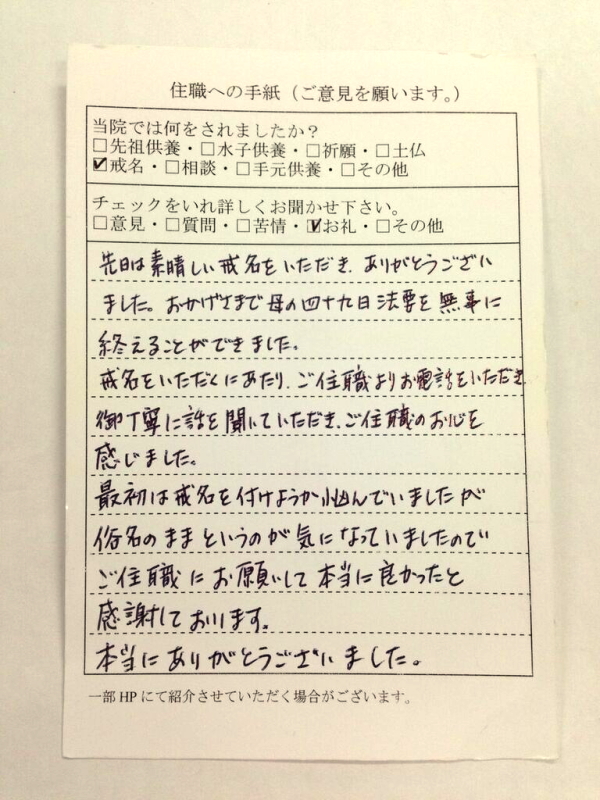 住職への手紙（ご意見を願います。）
当院では何をされましたか？
□先祖供養・□水子供養・□祈願・□土仏
☑戒名・□相談・□手元供養・□その他
チェックをいれ詳しくお聞かせ下さい。
□意見・□質問・□苦情・☑お礼・□その他
先日は素晴しい戒名をいただき、ありがとうござい
ました。おかげさまで母の四十九日法要を無事に
終えることができました。
戒名をいただくにあたり、ご住職よりお電話をいただき
御丁寧に話を聞いていただき、ご住職のお心を
感じました。
最初は戒名を付けようか悩んでいましたが
俗名のままというのが気になっていましたので
ご住職にお願いして本当に良かったと
感謝しております。
本当にありがとうございました。
一部HPにて紹介させていただく場合がございます。